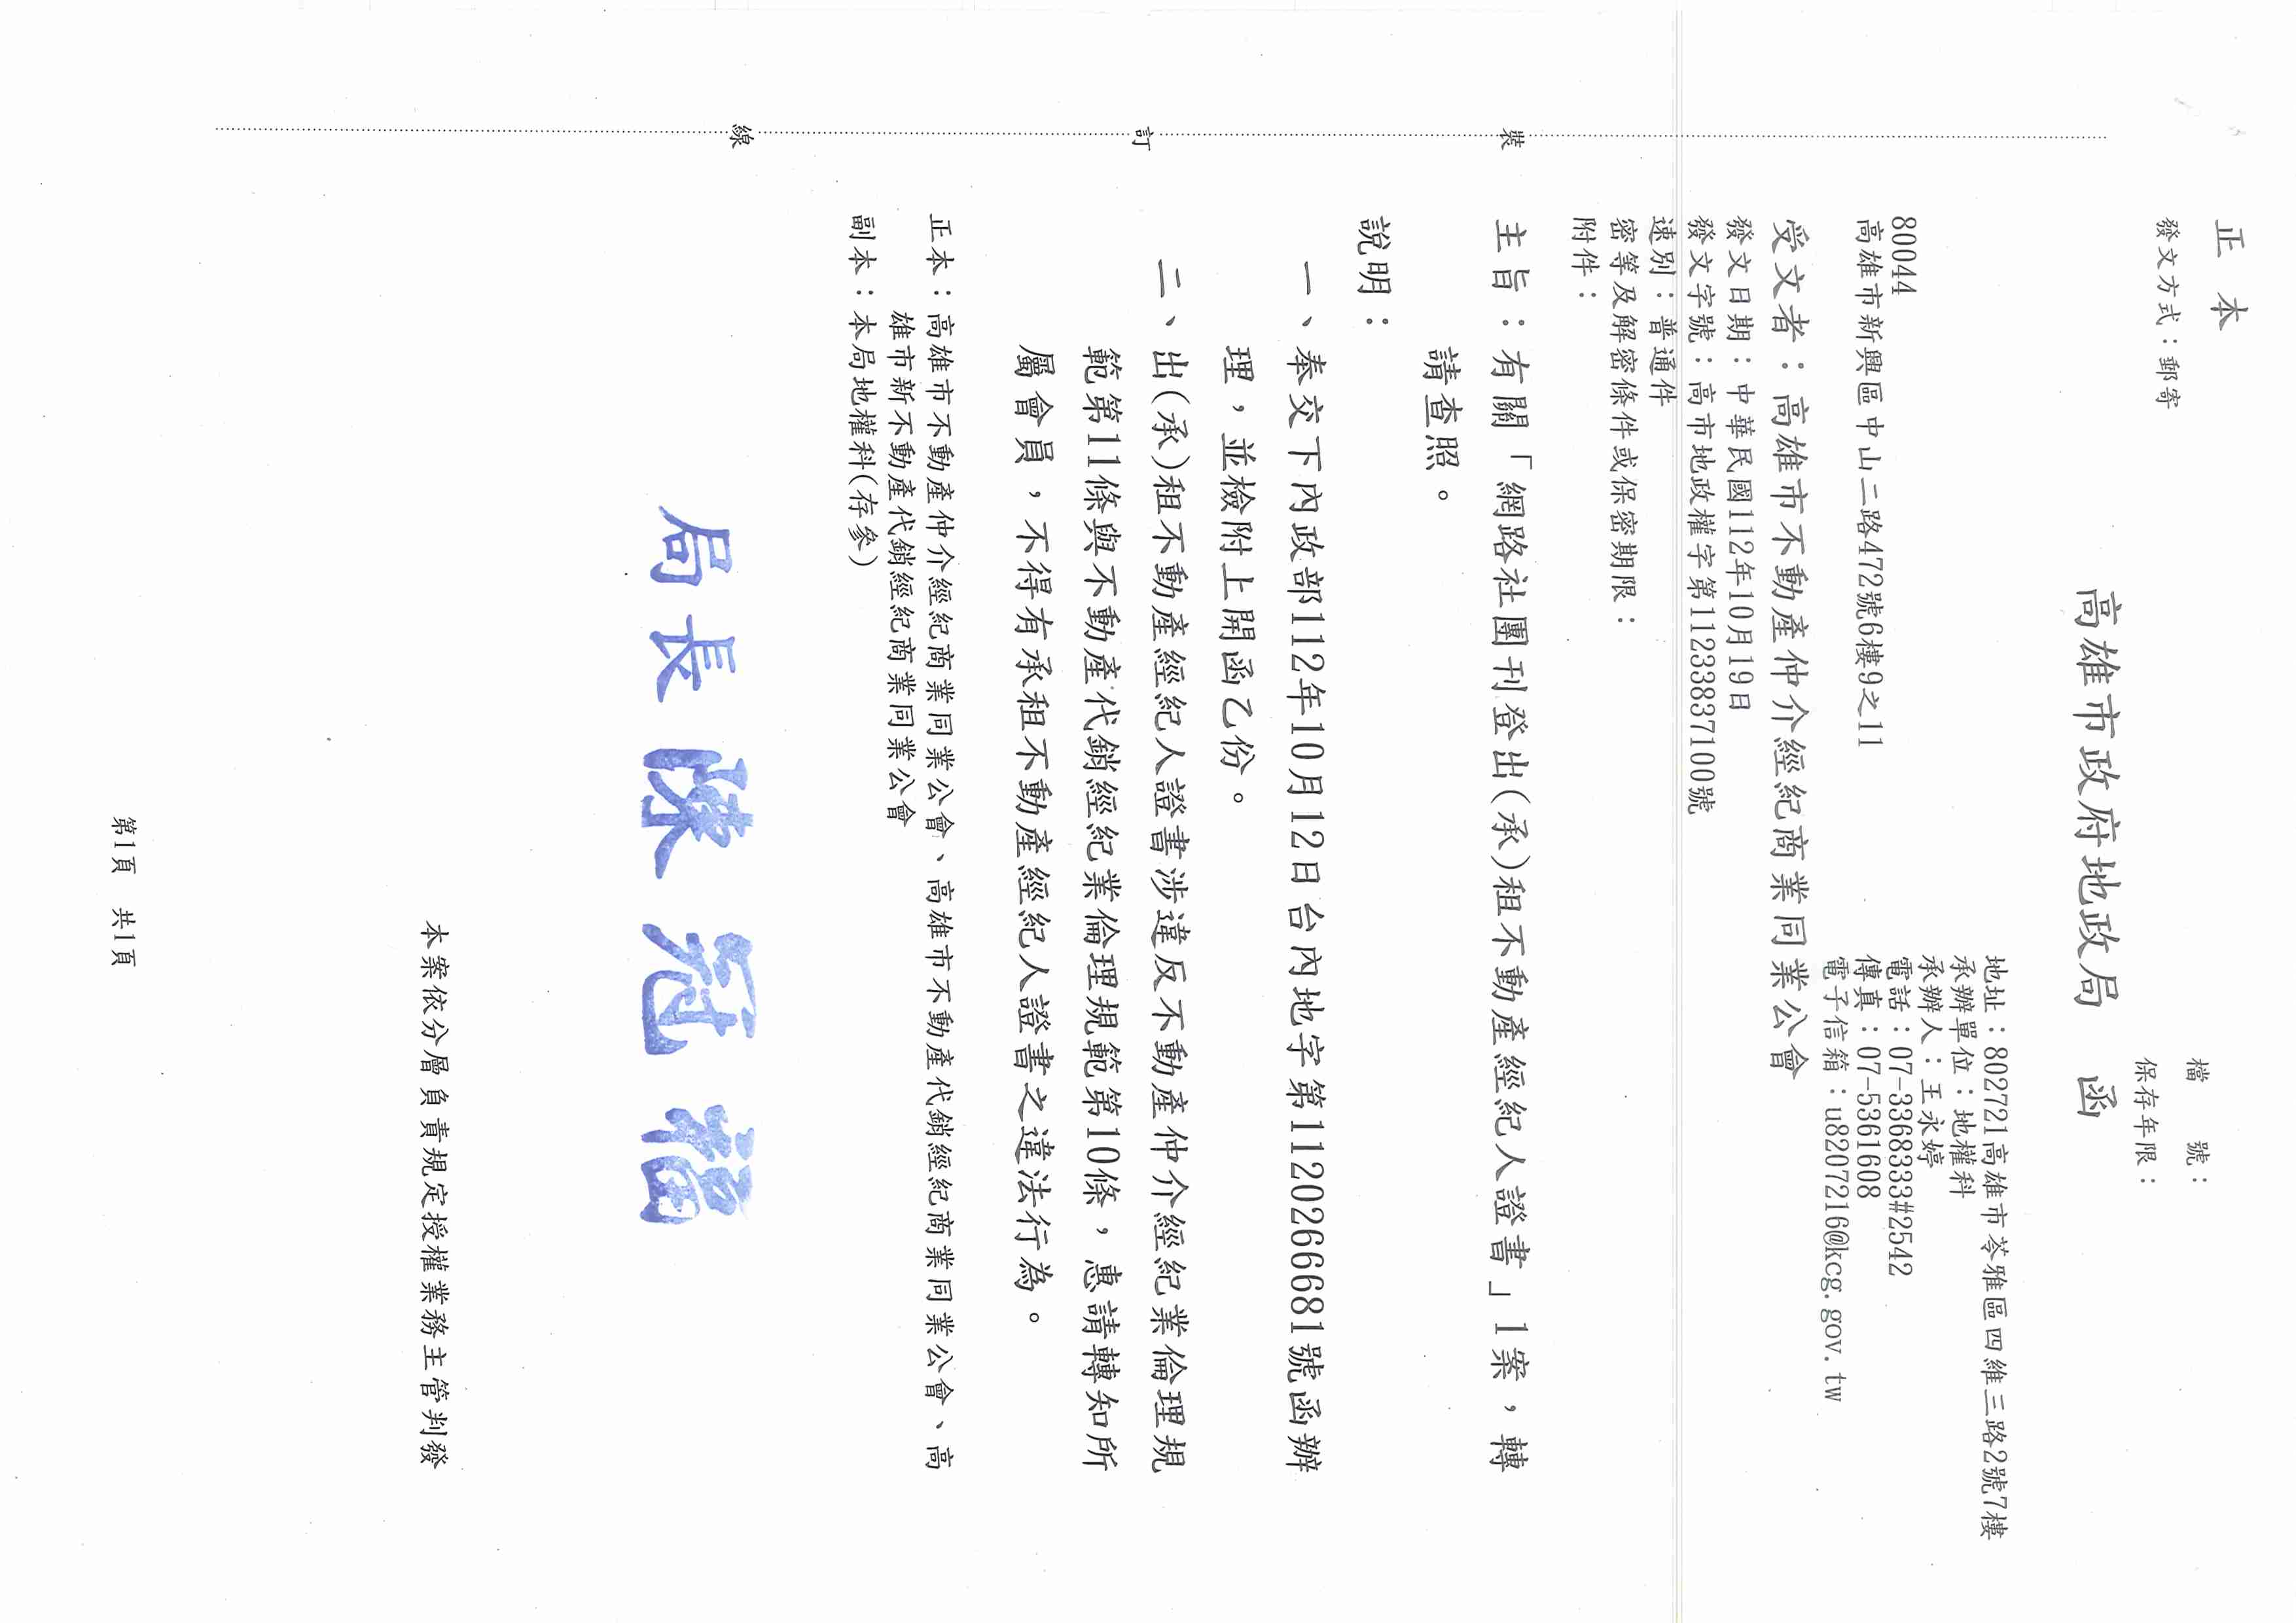 正 本
發文方式：郵寄
檔　　號：
保存年限：
高雄市政府地政局　函
地址：802721高雄市苓雅區四維三路2號7樓
承辦單位：地權科
承辦人：王永婷
電話：07-3368333#2542
傳真：07-5361608
電子信箱：u8207216@kcg.gov.tw
80044
高雄市新興區中山二路472號6樓9之11
受文者：高雄市不動產仲介經紀商業同業公會
發文日期：中華民國112年10月19日
發文字號：高市地政權字第11233837100號
速別：普通件
密等及解密條件或保密期限：
附件：
主旨：有關「網路社團刊登出(承)租不動產經紀人證書」1案，轉
請查照。
說明：
一、奉交下內政部112年10月12日台內地字第1120266681號函辦
理，並檢附上開函乙份。
二、出(承)租不動產經紀人證書涉違反不動產仲介經紀業倫理規
範第11條與不動產代銷經紀業倫理規範第10條，惠請轉知所
屬會員，不得有承租不動產經紀人證書之違法行為。
正本：高雄市不動產仲介經紀商業同業公會、高雄市不動產代銷經紀商業同業公會、高
雄市新不動產代銷經紀商業同業公會
副本：本局地權科(存參)
局長 陳冠福
本案依分層負責規定授權業務主管判發
第1頁　共1頁
裝
訂
線